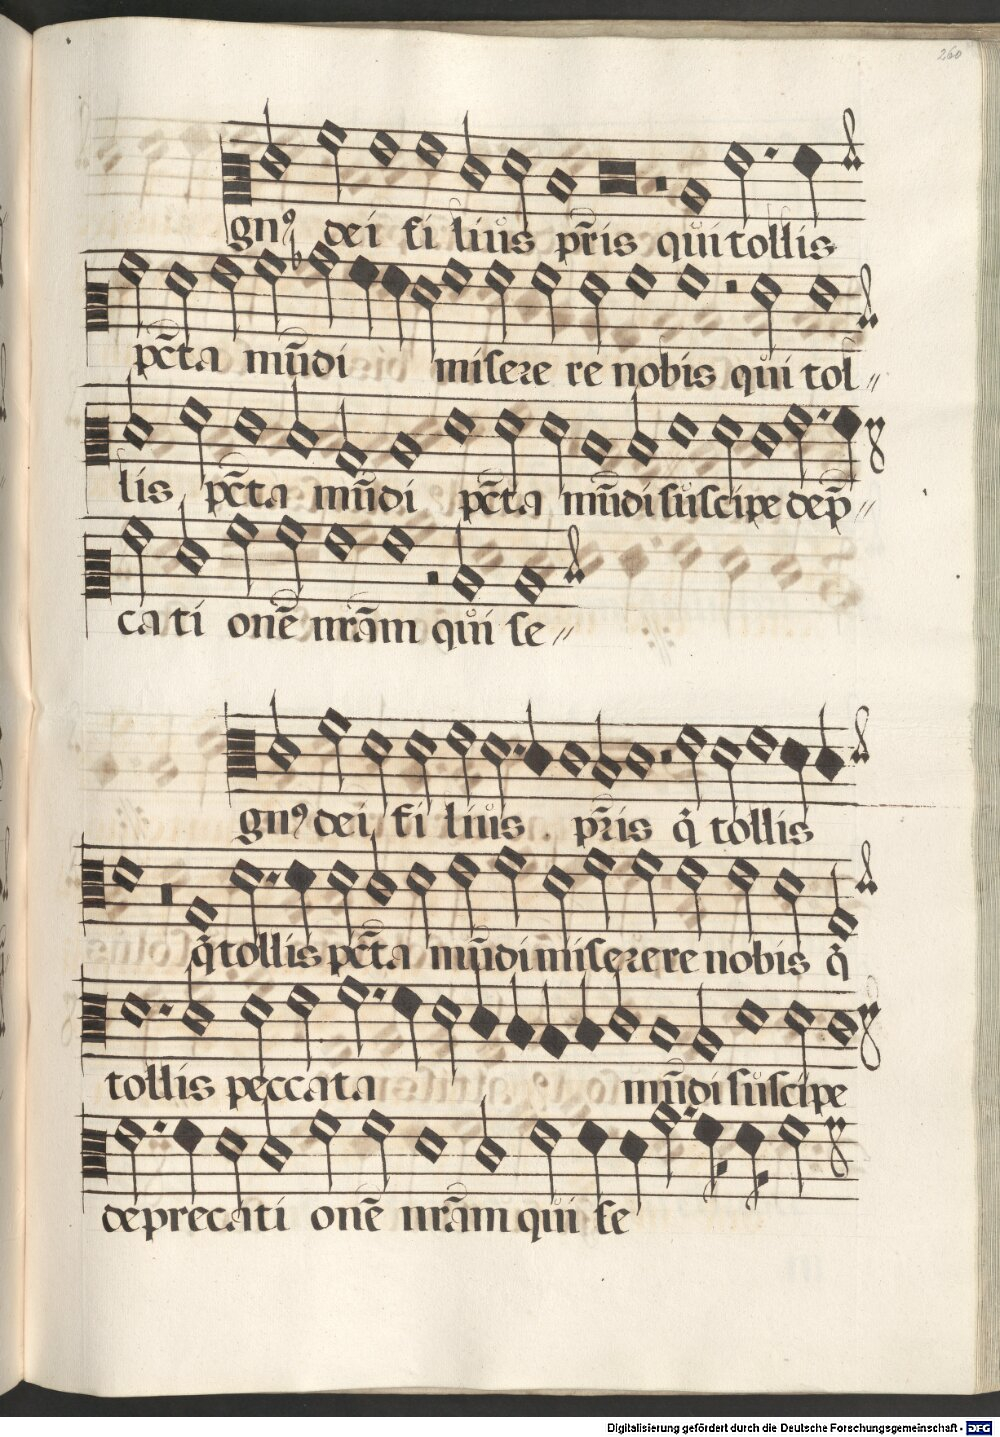 260
gnꝰ dei fi lius pr̄is qui tollis
pc̄ta mūdi misere re nobis qui tol〃
lis pc̄ta mūdi pc̄ta mūdi suscipe dep̄〃
cati onē nr̄am qui se〃
gnꝰ dei fi lius . pr̄is q̇ tollis
q̇ tollis pc̄ta mūdi miserere nobis q̇
tollis peccata mūdi suscipe
deprecati onē nr̄am qui se
Digitalisierung gefördert durch die Deutsche Forschungsgemeinschaft - DFG